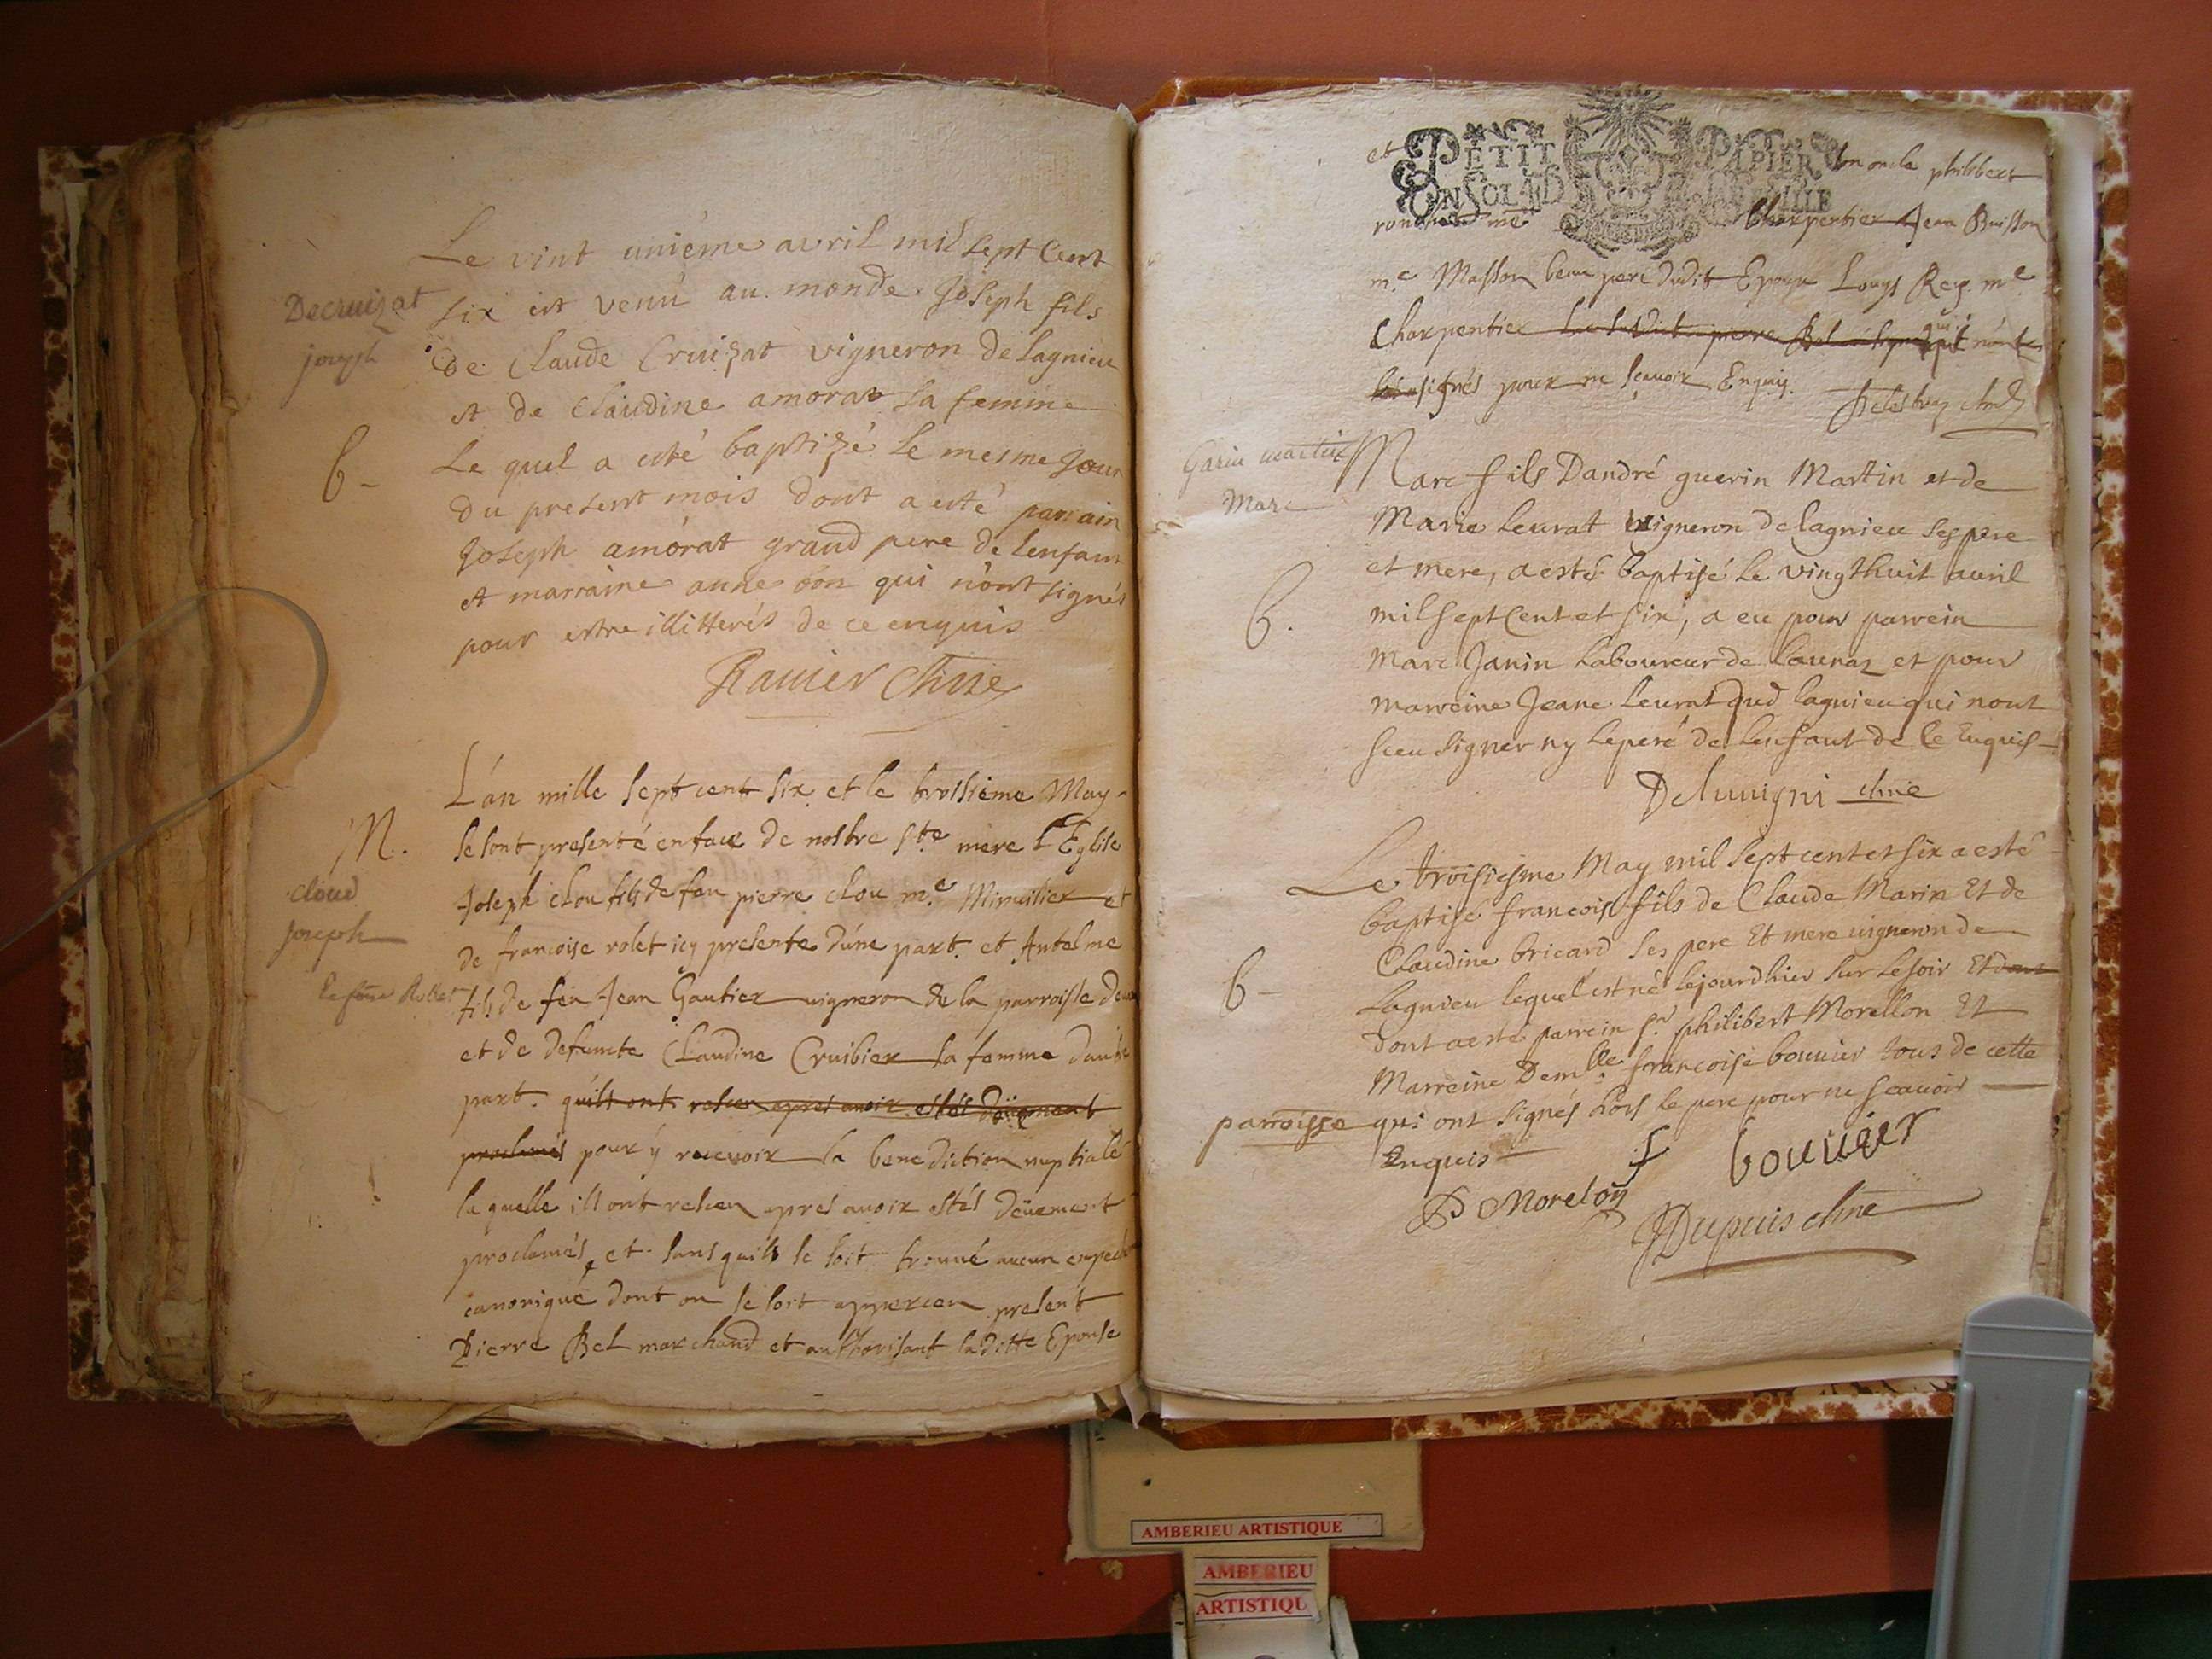 Le vint unième avril mil sept Cent
Decruizat
joseph
six est venu au monde Joseph fils
de Claude Cruizat vigneron de Lagnieu
et de Claudine amorat sa femme
B-
Le quel a esté baptizé le mesme Jour
du present mois dont a esté parrain
Joseph amorat grand pere de lenfant
et marraine anne bon qui n'ont signés
pour estre illitterés de ce enquis
Ravier Chne
L'an mille sept cent six et le troissieme May
M.
se sont presenté en face de nostre ste mere l'Eglise
cloud
joseph
Joseph clou fils de feu pierre clou me Minuisier et
de francoise rolet icy presente d'une part et Antelme
fils de feu Jean Gautier vigneron de la parroisse
et de defuncte Claudine Cruibier sa femme dautre
part. quilt ont receu apres avoir estés deüement
proclamés pour y recevoir la benediction nuptiale
la quelle ill ont receu apres avoir estés deüement
proclamés et sans quils se soit trouvé aucun empech
canonique dont on se soit apperceu present
Pierre Bel marchand et authorisant laditte Epouse
et PETIT PAPIER oncle philibert
EN SOL
me Charpentier Jean Buisson
me Masson beau pere dudit Epoux Louys Rey me
Charpentier pierre Bel qui n'ont
signés pour ne scavoir Enquis.
Garin martin
Marc
Marc fils Dandré guerin Martin et de
Marie Leurat vigneron de lagnieu ses pere
et mere, a esté baptisé le vingthuit avril
B.
mil sept Cent et six, a eu pour parrein
Marc Janin Laboureur de Launaz et pour
marreine Jeane Leurat dud lagnieu qui nont
sceu signer ny le pere de lenfant de ce Enquis
Deluvigni chne
Le troisiesme May mil sept cent et six a esté
baptisé francois fils de Claude Marin Et de
Claudine bricard ses pere Et mere vigneron de
B-
Lagnieu lequel est né lejourdhier sur le soir Et dont
dont a esté parrein sr philibert Morellon Et
Marreine Demlle francoise bouvier tous de cette
parroisse qui ont signés hors le pere pour ne scavoir
Enquis
f bouvier
P Morelon
JDupuis chne
AMBERIEU ARTISTIQUE
AMBERIEU
ARTISTIQU